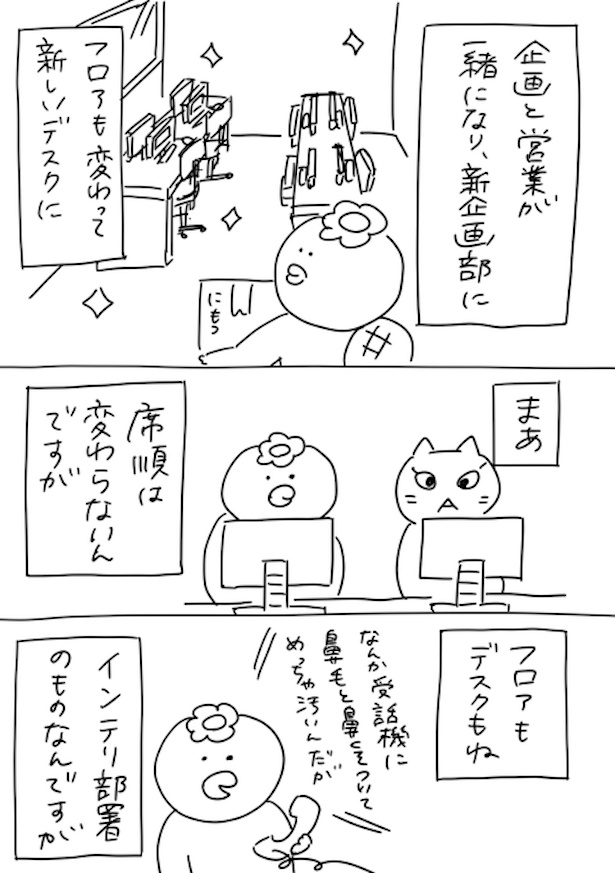 企画と営業が
一緒になり、新企画部に
フロアも変わって
新しいデスクに
にもつ
まあ
席順は
変わらないん
ですが
フロアも
デスクもね
なんか受話機に
鼻毛と鼻くそついて
めっちゃ汚いんだが
インテリ部署
のものなんですが